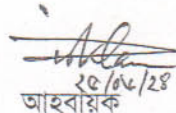 ২৫/০৮/২৪
আহবায়ক